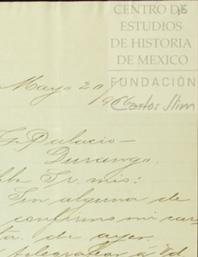 CENTRO DE
ESTUDIOS
DE HISTORIA
DE MEXICO
FUNDACIÓN
Carlos Slim
Mayo 20
Palacio-
Durango.
Sr. mio:
Sin alguna de
confirmo mi car
ta de ayer.